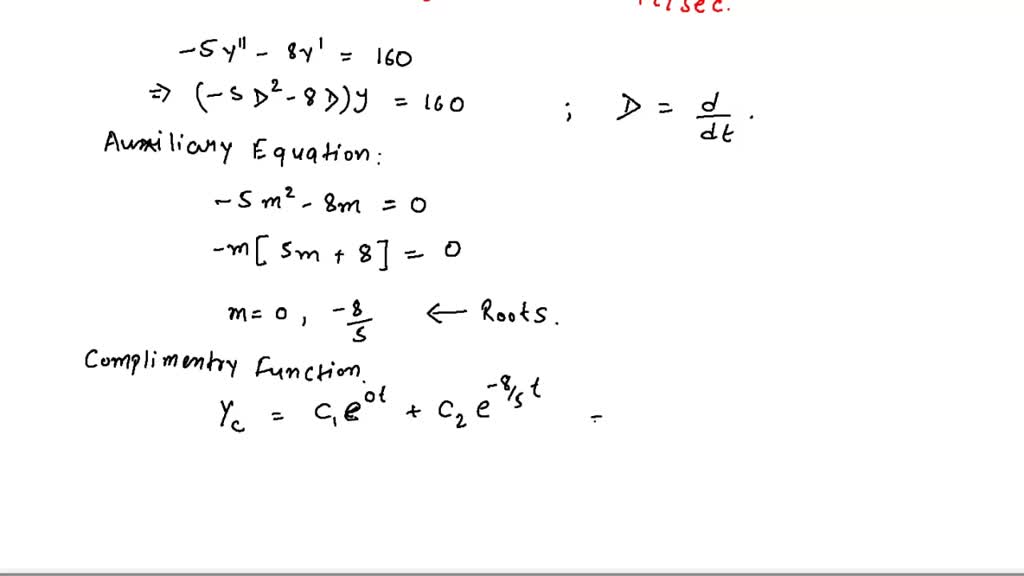 ft/sec.
-5y'' - 8y' = 160
⇒ (-5D² - 8D)y = 160 ; D = d/dt .
Auxiliary Equation:
-5m² - 8m = 0
-m[5m + 8] = 0
m = 0, -8/5 ← Roots.
Complimentry Function.
Yc = C₁e^0t + C₂e^-8/5 t =